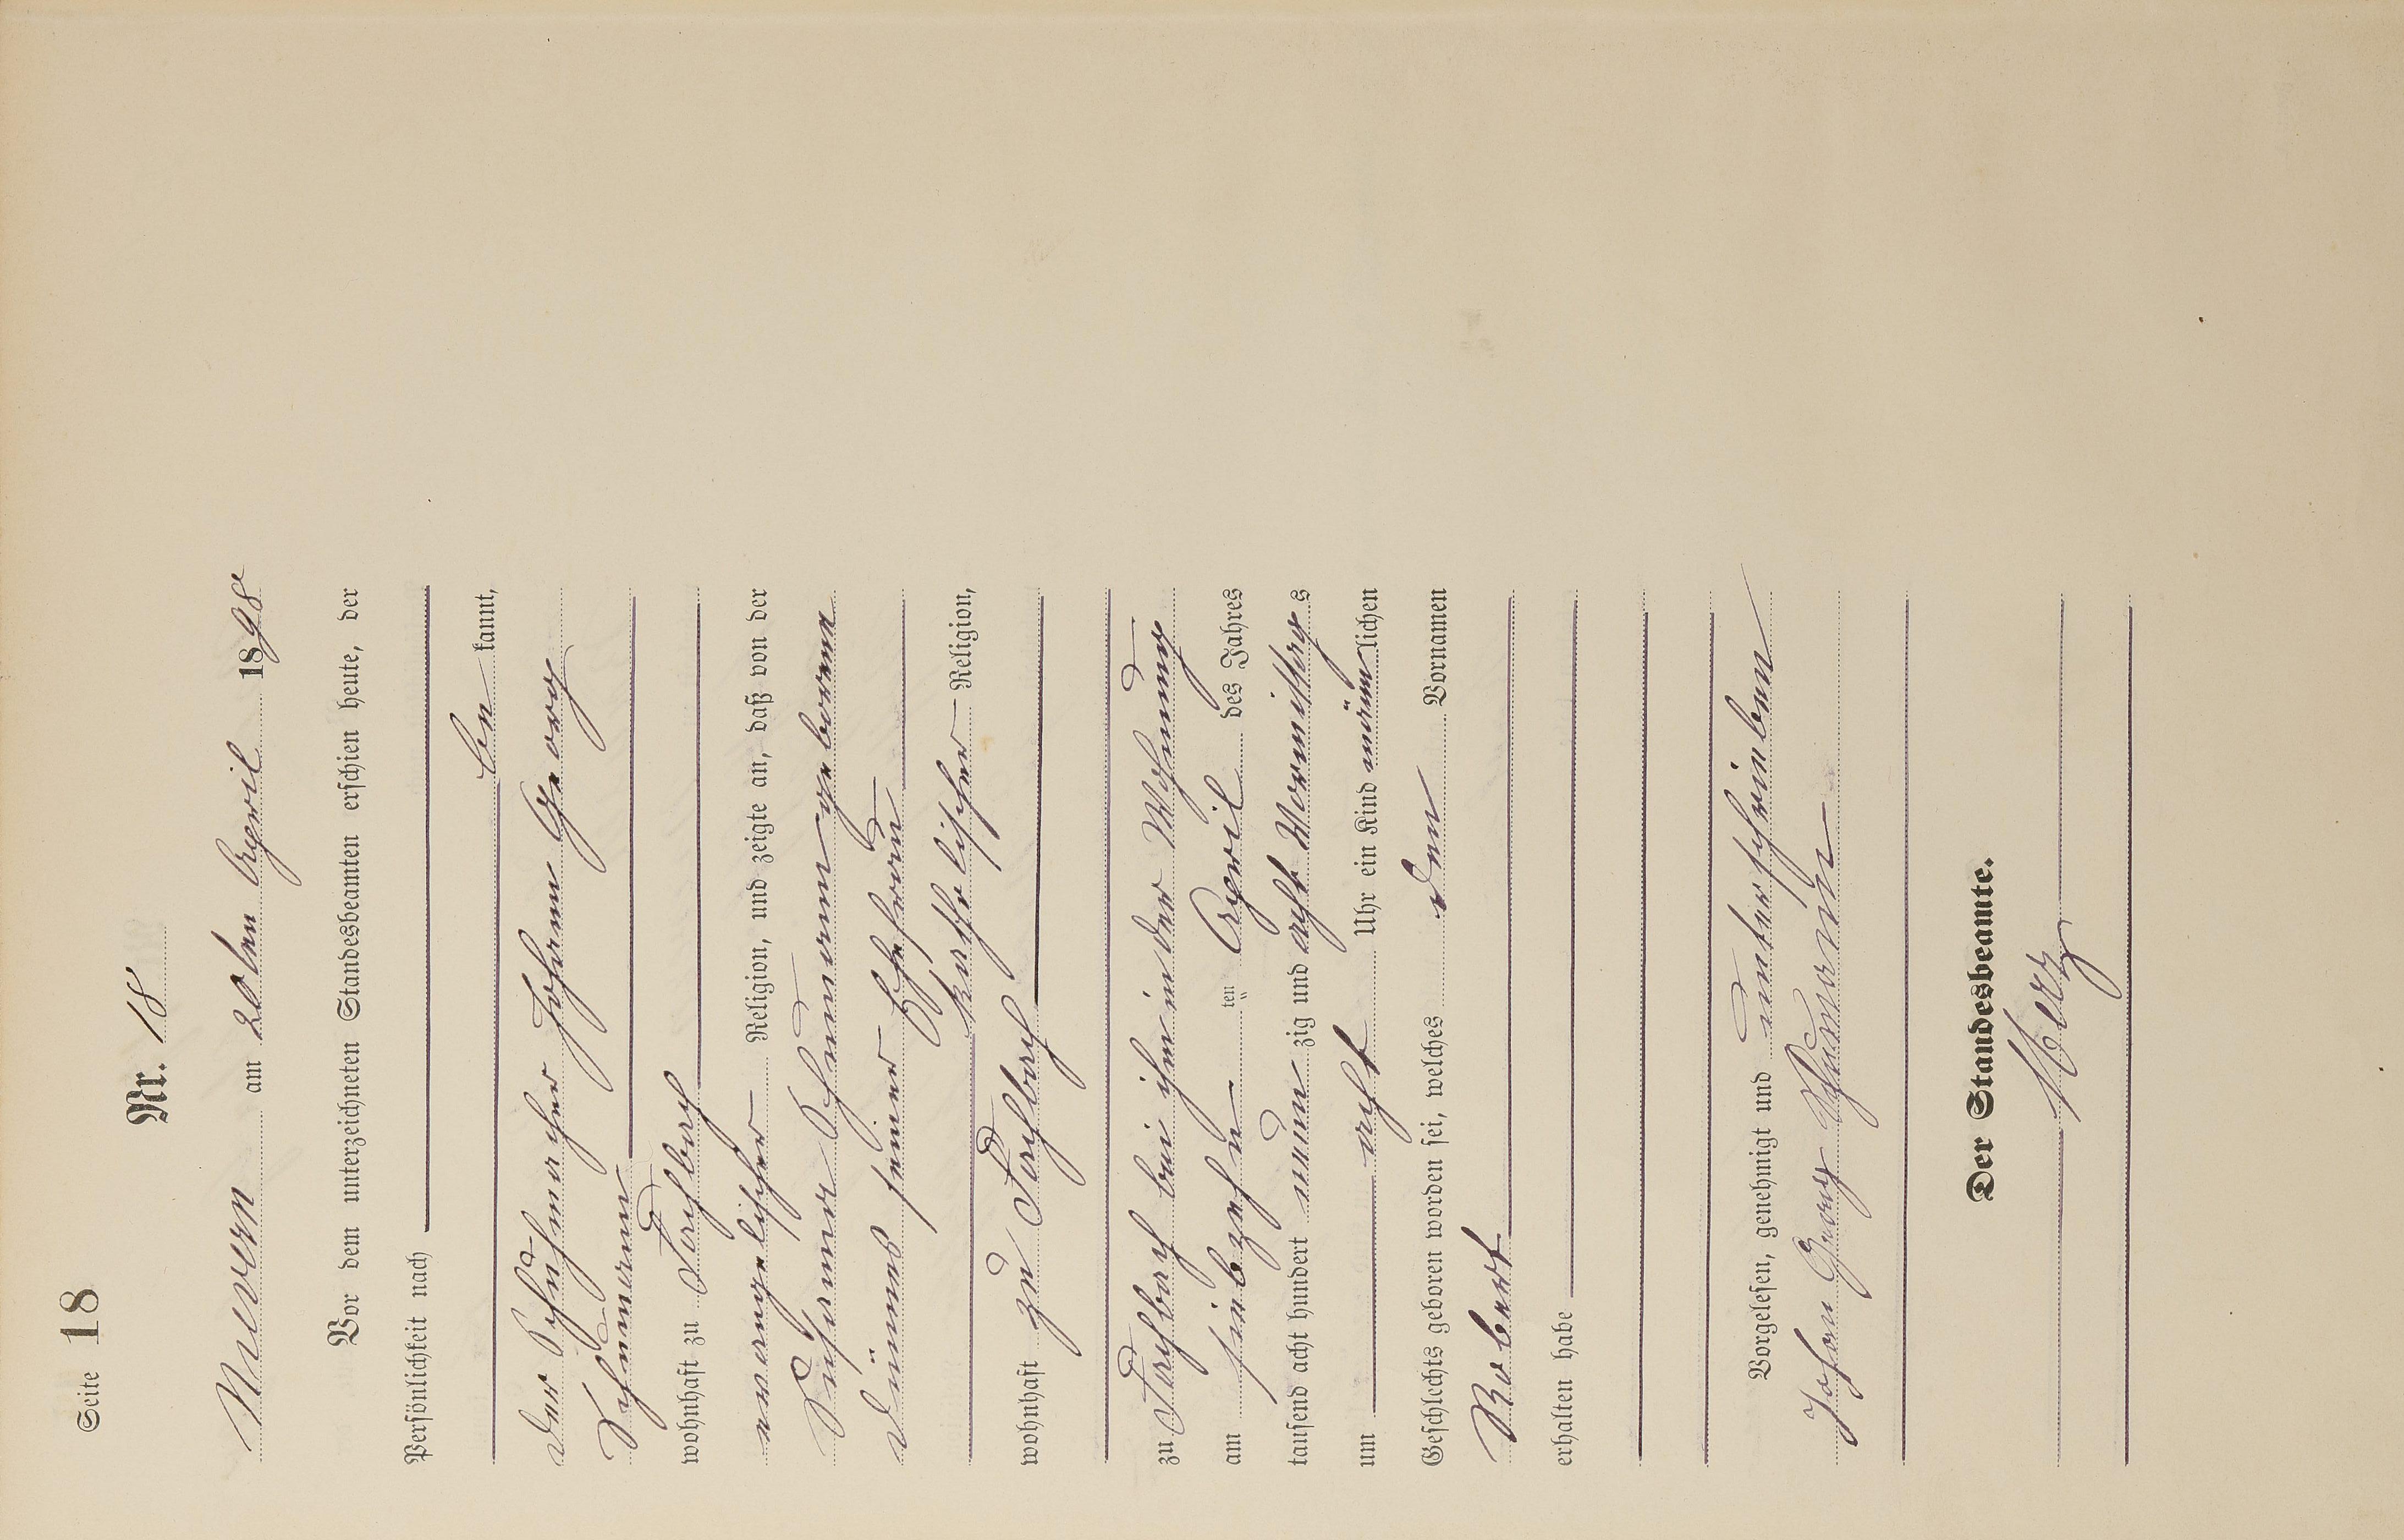 Seite 18
Nr. 18
am 20ten April 1898
Vor dem unterzeichneten Standesbeamten erschien heute, der
Persönlichkeit nach
be kannt,
der Schuhmacher Johann Georg
Schumann
wohnhaft zu
evangelischer Religion, und zeigte an, daß von der
Schumann geborene
seiner Ehefrau
katholischer Religion,
wohnhaft zu
zu bei ihm in der Wohnung
am siebzehn ten April des Jahres
tausend acht hundert neun zig und acht Vormittag s
um acht Uhr ein Kind männ lichen
Geschlechts geboren worden sei, welches den Vornamen
Robert
erhalten habe
Vorgelesen, genehmigt und unterschrieben
Johann Georg Schumann
Der Standesbeamte.
Merz